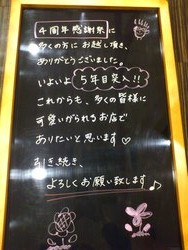 4周年感謝祭に
多くの方に お越し頂き、
ありがとうございました。
いよいよ 5年目突入!!
これからも、多くの皆様に
可愛いがられるお店で
ありたいと思います♡
引き続き、
よろしくお願い致します♪